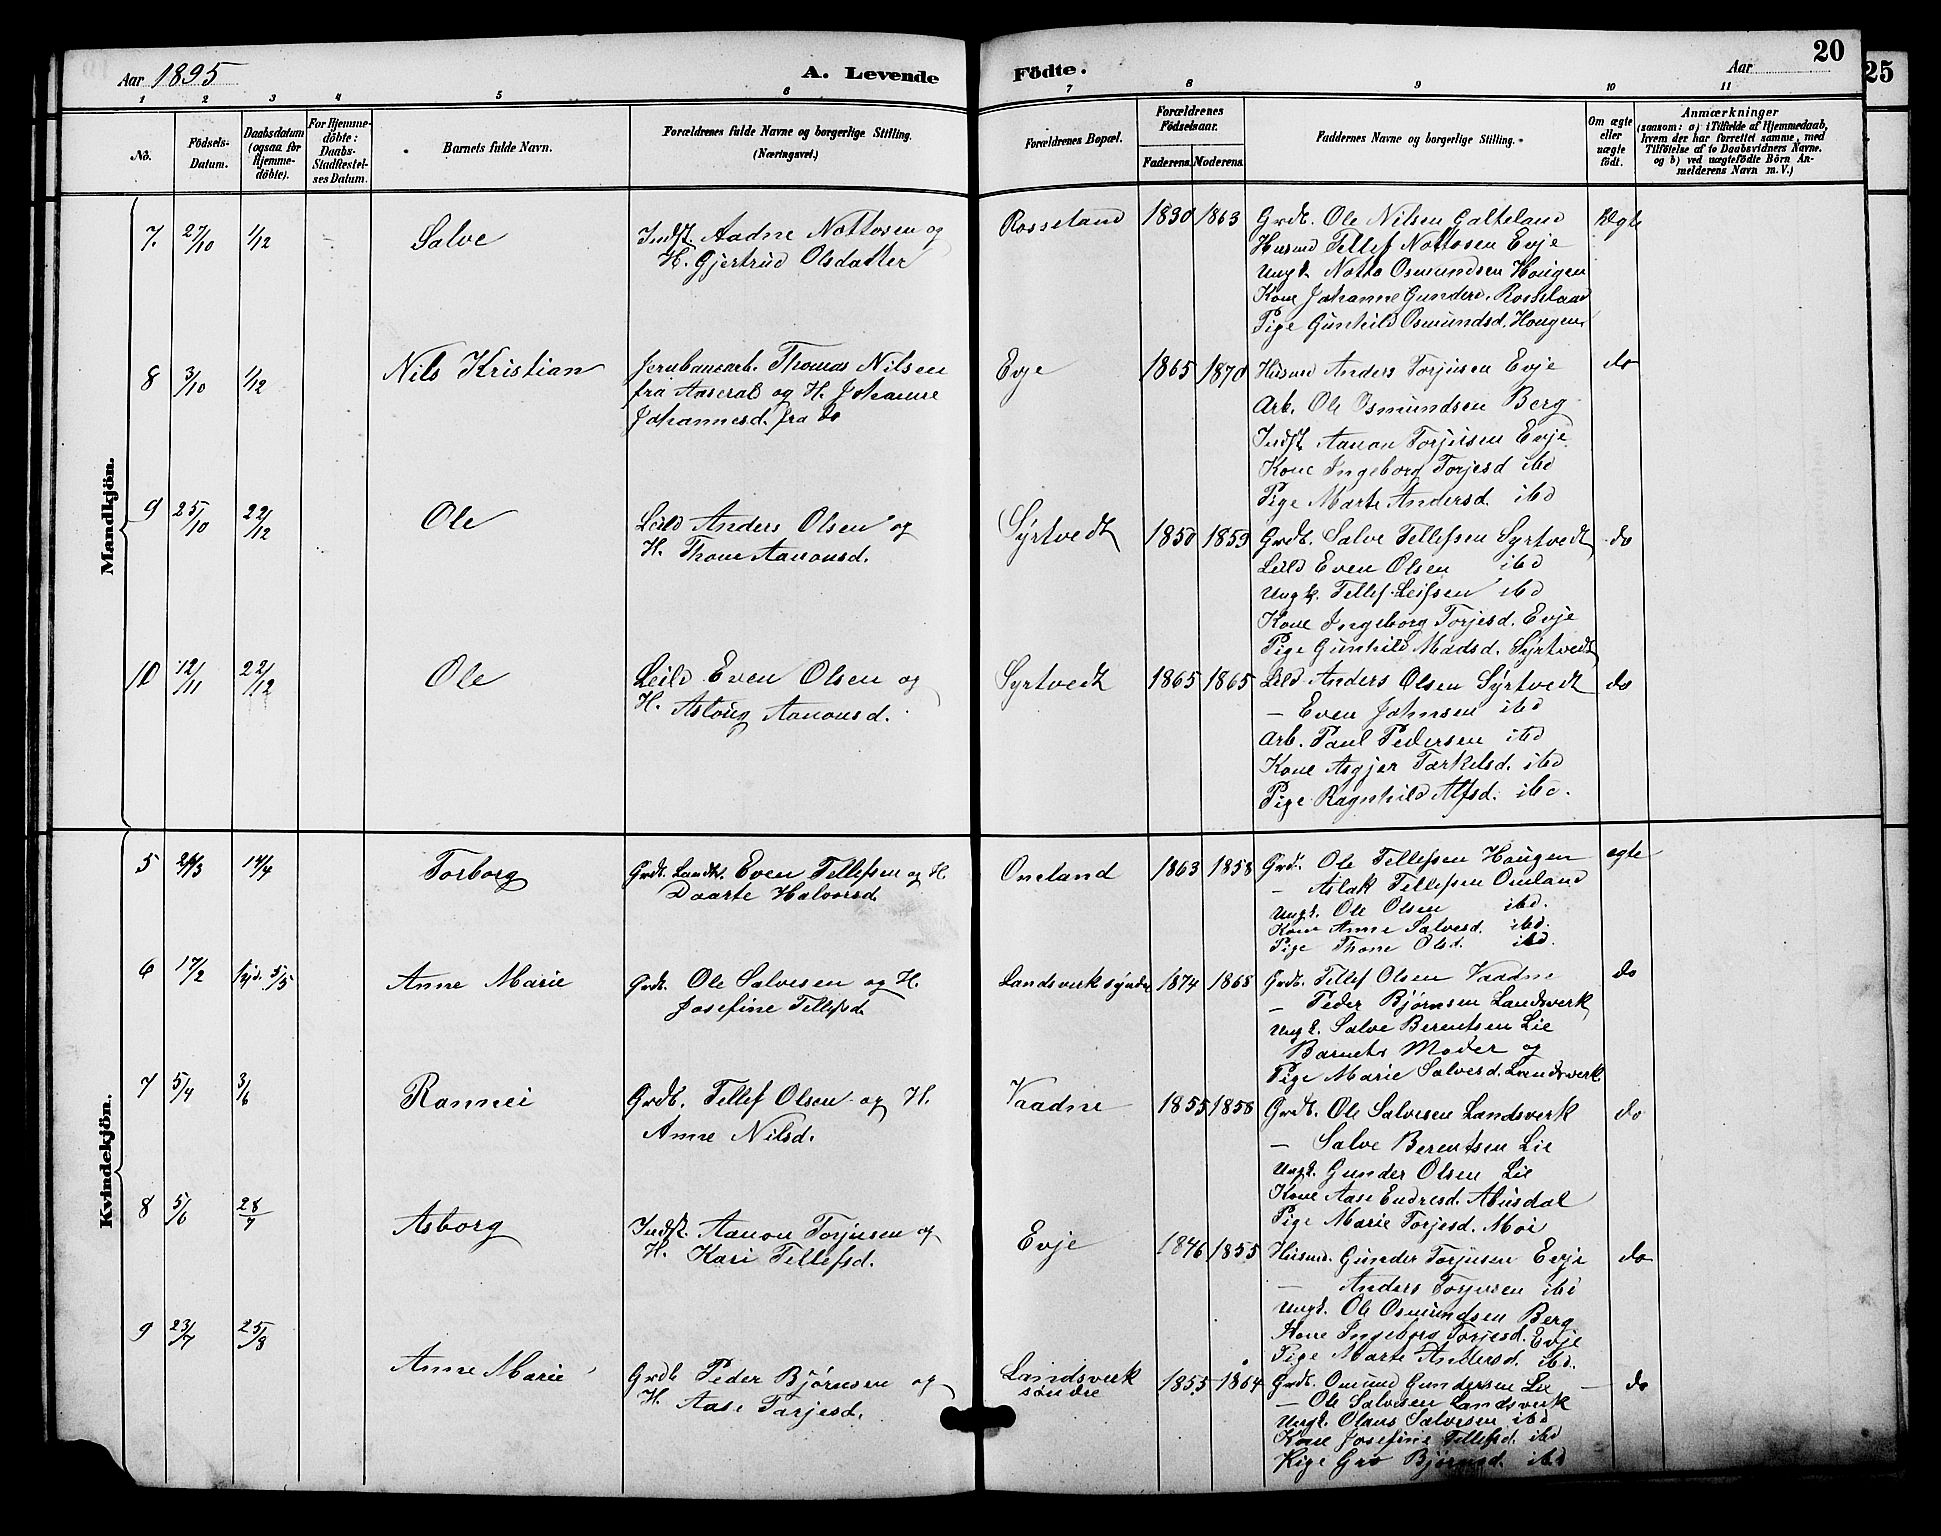 Aar 1895
A. Levende Födte.
Aar
20
25
1 2 3 4 5 6 7 8 9 10 11
No.
Födsels-Datum.
Daabsdatum (ogsaa for Hjemme-döbte).
For Hjemme-döbte: Daabs-Stadfæstel-ses Datum.
Barnets fulde Navn.
Forældrenes fulde Navne og borgerlige Stilling. (Næringsvei.)
Forældrenes Bopæl.
Forældrenes Födselsaar.
Faderens. Moderens.
Faddernes Navne og borgerlige Stilling.
Om ægte eller uægte födt.
Anmærkninger
(saasom: a) i Tilfælde af Hjemmedaab, hvem der har forrettet samme, med Tilföielse af to Daabsvidners Navne. og b) ved uægtefödte Börn An-melderens Navn m. V.)
Mandkjön.
7. 27/10 1/12 – Salve
Indst. Aadne Nottosen og
H. Gjertrud Olsdatter
Rosseland 1830 1863
Grdb. Ole Nilsen Galteland
Husmd Tellef Nottosen Evje
Ungk. Notto Osmundsen Hougen
Kone Johanne Gunders. Rosseland
Pige Gunhild Osmundsd. Hougen
Ægte
8 3/10 1/12 Nils Kristian
Jernbanearb. Thomas Nilsen
fra Aaseral og H. Johanne
Johannesd. fra do
Evje 1865 1870
Husmd Anders Torjusen Evje
Arb. Ole Osmundsen Berg
Indst Aanon Torjusen Evje
Kone Ingeborg Torjesd ibd
Pige Marte Andersd. ibd
do
9 25/10 22/12 Ole
Leild Anders Olsen og
H. Thone Aanonsd.
Syrtvedt 1850 1859
Grdb. Salve Tellefsen Syrtvedt
Leild Even Olsen ibd
Ungk. Tellef Leifsen ibd
Kone Ingeborg Torjesd. Evje
Pige Gunhild Madsd. Syrtvedt
do
10 12/11 22/12 Ole
Leild Even Olsen og
H. Aslaug Aanonsd.
Syrtvedt 1865 1865
Leild Anders Olsen Syrtvedt
– Even Johnsen ibd
Arb. Paul Pedersen ibd
Kone Asgjer Tarkelsd. ibd
Pige Ragnhild Alfsd. ibd.
do
Kvindekjön.
5 24/3 14/4 Torborg
Grdb. Landh. Even Tellefsen og H.
Daarte Halvorsd.
Omland 1863 1858
Grdb. Ole Tellefsen Hougen
– Aslak Tellefsen Omland
Ungk. Ole Olsen ibd.
Kone Anne Salvesd. ibd.
Pige Thone Olsd. ibd.
ægte
6 17/2 5/5 Anne Marie
Grdb. Ole Salvesen og H.
Josefine Tellefsd.
Landsverk syndre 1874 1868
Grdb. Tellef Olsen Vaadne
– Peder Bjørnsen Landsverk
Ungk. Salve Berentsen Lie
Barnets Moder og
Pige Marie Salvesd. Landsverk
do
7 5/4 3/6 Rannei
Grdb. Tellef Olsen og H.
Anne Nilsd.
Vaadne 1855 1858
Grdb. Ole Salvesen Landsverk
– Salve Berentsen Lie
Ungk. Gunder Olsen Lie
Kone Aase Endresd. Abusdal
Pige Marie Torjesd. Moi
do
8 5/6 28/7 Asborg
Indst. Aanon Torjusen og
H. Kari Tellefsd.
Evje 1846 1855
Husmd. Gunder Torjusen Evje
– Anders Torjusen ibd
Ungk. Ole Osmundsen Berg
Kone Ingeborg Torjesd. Evje
Pige Marte Andersd. ibd.
do
9 23/7 25/8 Anne Marie
Grdb Peder Bjørnsen og
H. Aase Tarjesd.
Landsverk søndre 1855 1864
Grdb. Omund Gundersen Lie
– Ole Salvesen Landsverk
Ungk. Olaus Salvesen ibd
Kone Josefine Tellefsd. ibd
Pige Gro Bjørnsd. ibd
do